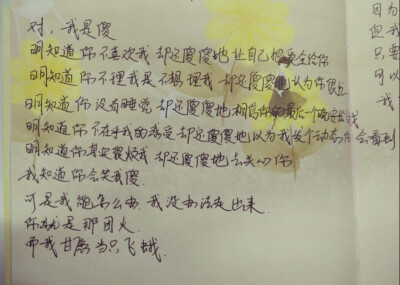 对，我是傻
明知道你不喜欢我 却还傻傻地让自己把爱全给你
明知道你不理我是不想理我 却还傻傻地以为你很忙
明知道你没有睡觉 却还傻傻地相信你的最后一个晚安给我
明知道你不在乎我的感受 却还傻傻地以为我发个动态你会看到
明知道你其实很烦我 却还傻傻地去关心你
我知道你会笑我傻.
可是我能怎么办 我没办法走出来
你就是那团火
而我甘愿当只飞蛾.
因为
但我
只要
可以
我